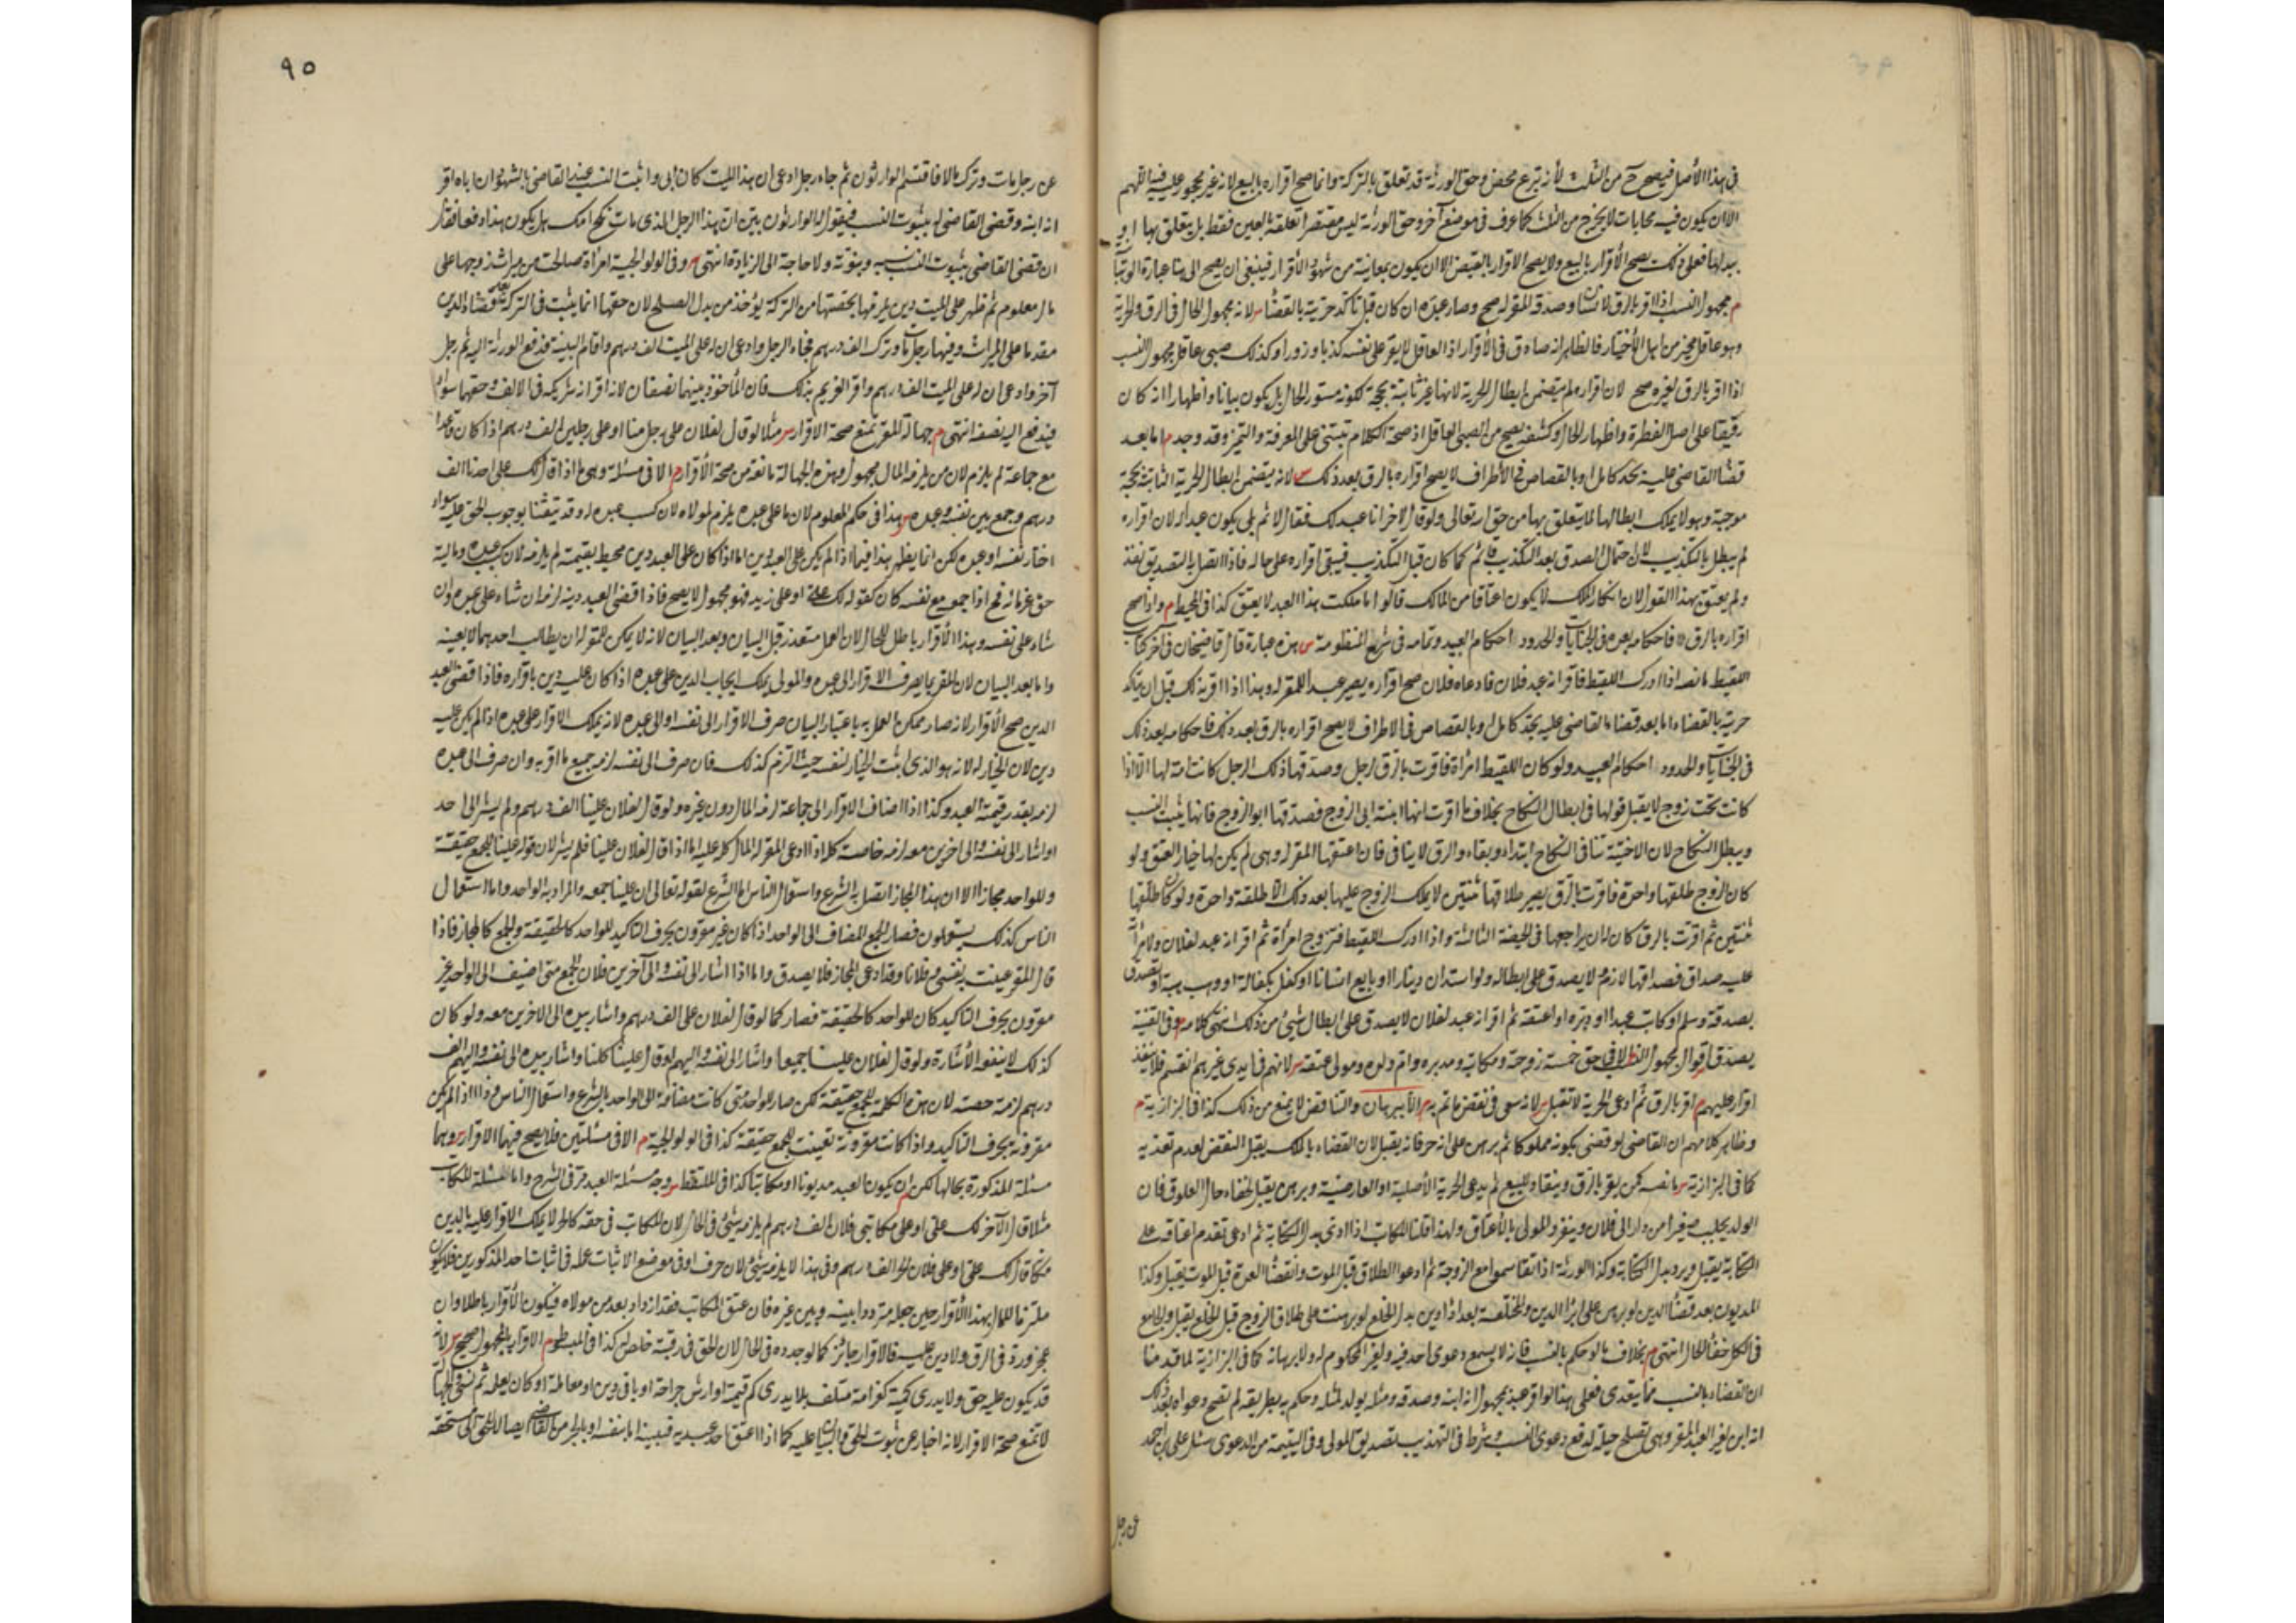 في هذا الأصل فيصح من الثلث لأنه تبرع محض وحق الورثة قد تعلق بالتركة وانما صح اقراره بالبيع لانه غير محجور عليه فيه اللهم
الا ان يكون فيه محابات لا يخرج من الثلث كما عرف في موضع آخر وحق الورثة ليس مقتصرا تعلقه بالعين فقط بل يتعلق بها او
ببدلها فعلى ذلك يصح الأقرار بالبيع ولا يصح الاقرار بالقبض الا ان يكون بمعاينة من شهود الأقرار فينبغي ان يصح الى هنا عبارة
م مجهول النسب اذا اقر بالرق لانسان وصدقه المقر له صح وصار عبده ان كان قبل تأكد حريته بالقضاء س لانه مجهول الحال في الرق والحرية
وهو عاقل مخير من اهل الأختيار فالظاهر انه صادق في الأقرار اذ العاقل لا يقر على نفسه كذبا وزورا وكذلك صبي عاقل مجهول النسب
اذا اقر بالرق لغيره صح لان اقراره لم يتضمن ابطال الحرية لانها غير ثابتة بحجة لكونه مستور الحال بل يكون بيانا واظهارا انه كان
رقيقا على اصل الفطرة واظهار الحال وكشفه يصح من الصبي العاقل اذ صحة الكلام تبتنى على المعرفة والتميز وقد وجد م اما بعد
قضاء القاضي عليه بحد كامل او بالقصاص في الأطراف لا يصح اقراره بالرق بعد ذلك س لانه يتضمن ابطال الحرية الثابتة بحجة
موجبة وهو لا يملك ابطالها لما يتعلق بها من حق الله تعالى ولو قال لاخر انا عبد لك فقال لا ثم بلى يكون عبدا له لان اقراره
لم يبطل بالتكذيب لان احتمال الصدق بعد التكذيب قائم كما كان قبل التكذيب فيبقى اقراره على حاله فاذا اتصل به التصديق نفذ
ولم يعتق بهذا القول لان انكار الملك لا يكون اعتاقا من المالك قالوا ما ملكت هذا العبد لا يعتق كذا في المحيط م واذا صح
اقراره بالرق فاحكامه بعده في الجنايات والحدود احكام العبيد وتمامه في شرح المنظومة س هذه عبارة قال قاضيخان في آخر كتاب
اللقيط ما نصه اذا ادرك اللقيط فاقر انه عبد فلان فادعاه فلان صح اقراره ويصير عبدا للمقر له وهذا اذا اقر بذلك قبل ان يتأكد
حريته بالقضاء اما بعد قضاء القاضي عليه بحد كامل او بالقصاص في الاطراف لا يصح اقراره بالرق بعد ذلك فاحكامه بعد ذلك
في الجنايات والحدود احكام العبيد ولو كان اللقيط امرأة فاقرت بالرق لرجل وصدقها ذلك الرجل كانت امة لها الا اذا
كانت تحت زوج لا يقبل قولها في ابطال النكاح بخلاف ما اقرت انها ابنة ابي الزوج فصدقها ابو الزوج فانها يثبت النسب
ويبطل النكاح لان الاختية تنافي النكاح ابتداء وبقاء والرق لا ينافي فان اعتقها المقر له وهى لم يكن لها خيار العتق ولو
كان الزوج طلقها واحدة فاقرت بالرق يصير طلاقها ثنتين لا يملك الزوج عليها بعد ذلك الا طلقة واحدة ولو كان طلقها
ثنتين ثم اقرت بالرق كان له ان يراجعها في الحيضة الثالثة واذا ادرك اللقيط فتزوج امرأة ثم اقر انه عبد لفلان ولامرأته
عليه صداق فصداقها لازم ولا يصدق على ابطاله ولو استدان دينارا او بايع انسانا او كفل بكفالة او وهب هبة او تصدق
بصدقة وسلم او كاتب عبدا او دبره او اعتقه ثم اقر انه عبد لفلان لا يصدق على ابطال شيئ من ذلك انتهى كلامه م وفي القنية
يصدق اقوال مجهول الاصل لا في حق خمسة زوجة ومكاتب ومدبره وام ولده ومولى عتقه س لانهم في ايدي غيرهم انفسهم فلا ينفذ
اقراره عليهم م اقر بالرق ثم ادعى الحرية لا تقبل س لانه سعى في نقض ما تم به م الا ببرهان والتناقض لا يمنع من ذلك كذا في البزازية م
وظاهر كلامهم ان القاضي لو قضى بكونه مملوكا ثم برهن على انه حر فانه يقبل لان القضاء بالملك يقبل النقض لعدم تعديه
كما في البزازية س ما نصه كمن يقر بالرق وينقاد للبيع ثم يدعي الحرية الأصلية او العارضية وبرهن يقبل لخفاء حال العلوق فان
الولد يجلب صغيرا من دار الى فلان وينفرد المولى بالأعتاق ولهذا قلنا المكاتب اذا ادى بدل الكتابة ثم ادعى تقدم اعتاقه على
الكتابة يقبل ويرد بدل الكتابة وكذا الورثة اذا تقاسموا مع الزوجة ثم ادعوا الطلاق قبل الموت وانقضاء العدة قبل الموت يقبل وكذا
المديون بعد قضاء الدين لو برهن على ابراء الدين والمختلعة بعد اداء بدل الخلع لو برهنت على طلاق الزوج قبل الخلع يقبل والجامع
في الكل خفاء الحال انتهى م بخلاف ما لو حكم بالنسب فانه لا يسمع دعوى احد فيه لغير المحكوم له ولا برهانه كما في البزازية لما قدمنا
ان القضاء بالنسب مما يتعدى فعلى هذا لو اقر عبد مجهول انه ابنه وصدقه ومثله يولد لمثله وحكم به بطريقه لم تصح دعواه بعد ذلك
انه ابن لغير العبد المقر وهي تصلح حيلة لدفع دعوى النسب وشرط في التهذيب تصديق المولى وفي اليتيمة من الدعوى سئل علي بن احمد
عن رجل
٩٥
عن رجل مات وترك مالا فاقتسم الوارثون ثم جاء رجل وادعى ان هذا الميت كان ابي واثبت النسب عند القاضي بالشهود ان اباه اقر
انه ابنه وقضى القاضي له بثبوت النسب فيقول له الوارثون بين ان هذا الرجل الذي مات نكح امك هل يكون هذا دفعا فقال
ان قضى القاضي بثبوت النسب ثبت نسبه وبنوته ولا حاجة الى الزيادة انتهى س وفي الولوالجية امرأة صالحت من ميراث زوجها على
مال معلوم ثم ظهر على الميت دين يلزمها بحصتها من التركة يؤخذ من بدل الصلح لان حقها انما يثبت في التركة بعد قضاء الدين
مقدما على الميراث وفيها رجل مات وترك الف درهم فجاء الرجل وادعى ان له على الميت الف درهم واقام البينة فدفع الورثة اليه ثم رجل
آخر وادعى ان له على الميت الف درهم واقر الغريم بذلك فان المأخوذ بينهما نصفان لانه اقر انه شريكه في الالف وحقهما سواء
فيدفع اليه نصفه انتهى م جهالة المقر يمنع صحة الاقرار س مثلا لو قال لفلان على رجل منا او على رجلين الف درهم اذا كان قاعدا
مع جماعة لم يلزم لان من يلزمه المال مجهول وهذه الجهالة مانعة من صحة الأقرار م الا في مسئلة وهى ما اذا قال لك على احدنا الف
درهم وجمع بين نفسه وعبده س هذا في حكم المعلوم لان ما على عبده يلزم لمولاه لان كسب عبده له وقد تيقنا بوجوب الحق عليه سواء
اختار نفسه او عبده لكن انما يظهر هذا فيما اذا لم يكن على العبد دين اما اذا كان على العبد دين محيط بقيمته لم يلزمه لان كسب عبده وماليته
حق غرمائه فح اذا جمع مع نفسه كان كقوله لك علي او على زيد فهو مجهول لا يصح فاذا قضى العبد دينه لزم ان شاء على عبده وان
شاء على نفسه وهذا الأقرار باطل للحال لان العمل متعذر قبل البيان وبعد البيان لانه لا يمكن للمقر له ان يطالب احدهما لا بعينه
واما بعد البيان لان المقر بما يصرف الاقرار الى عبده والمولى يملك ايجاب الدين على عبده اذا كان عليه دين باقراره فاذا قضى العبد
الدين صح الأقرار لانه صار ممكن العمل به باعتبار البيان صرف الاقرار الى نفسه او الى عبده لانه يملك الاقرار على عبده اذا لم يكن عليه
دين لان الخيار له لانه هو الذي اثبت الخيار لنفسه حيث التزم كذلك فان صرف الى نفسه لزمه جميع ما اقر به وان صرف الى عبده
لزمه بقدر قيمة العبد وكذا اذا اضاف الاقرار الى جماعة لزمه المال دون غيره ولو قال لفلان علينا الف درهم ولم يشر الى احد
او اشار الى نفسه والى اخرين معه لزمه خاصة كله اذا ادعى المقر له المال كله عليه اما اذا قال لفلان علينا فلم يشر لان قوله علينا للجمع حقيقة
وللواحد مجازا الا ان هذا المجاز اتصل به الشرع واستعمال الناس اما الشرع لقوله تعالى ان علينا جمعه والمراد به الواحد واما استعمال
الناس كذلك يستعملون فصار الجمع المضاف الى الواحد اذا كان غير مقرون بحرف التأكيد للواحد كالحقيقة وللجمع كالمجاز فاذا
قال المقر عنيت به نفسي وفلانا فقد ادعى المجاز فلا يصدق واما اذا اشار الى نفسه والى آخرين فلان الجمع متى اضيف الى الواحد غير
مقرون بحرف التأكيد كان للواحد كالحقيقة فصار كما لو قال لفلان علي الف درهم واشار بيده الى الاخرين معه ولو كان
كذلك لا ينفعه الأشارة ولو قال لفلان علينا جميعا واشار الى نفسه واليهم او قال علينا كلنا واشار بيده الى نفسه واليهم الف
درهم لزمه حصته لان هذه الكلمة للجمع حقيقة لكن صار للواحد متى كانت مضافة الى الواحد بالشرع واستعمال الناس وذا اذا لم يكن
مقرونة بحرف التأكيد واذا كانت مقرونة تعينت للجمع حقيقة كذا في الولوالجية م الا في مسئلتين فلا يصح فيهما الاقرار س وهما
مسئلة المذكورة بحالها لكن م ان يكون العبد مديونا او مكاتبا كذا في الملتقط س وجه مسئلة العبد مر في الشرح واما المسئلة المكاتب
مثلا قال لآخر لك علي او على مكاتبي فلان الف درهم لم يلزمه شيئ في الحال لان المكاتب في حقه كالحر لا يملك الاقرار عليه بالدين
فكانه قال لك علي او على فلان الحر الف درهم وفي هذا لا يلزمه شيئ لان حرف او في موضع الاثبات عمله في اثبات احد المذكورين فلا يكون
ملتزما للمال بهذا الأقرار حين جعله مترددا بينه وبين غيره فان عتق المكاتب فقد ازداد بعد من مولاه فيكون الأقرار باطلا وان
عجز ورد في الرق ولا دين عليه فالاقرار جائز كما لو جدده في الحال لان الحق في رقبته خلص له كذا في المبسوط م الاقرار بالمجهول صحيح س لانه
قد يكون عليه حق ولا يدري كمية كغرامة متلف بلا يدرى كم قيمته او ارش جراحة او باقي دين او معاملة او كان يعلمه ثم نسي والجهالة
لا تمنع صحة الاقرار لانه اخبار عن ثبوت الحق والبيان عليه كما اذا اعتق احد عبديه فيبينه اما بنفسه او بالجبر من القاضي ايصالا للحق الى مستحقه